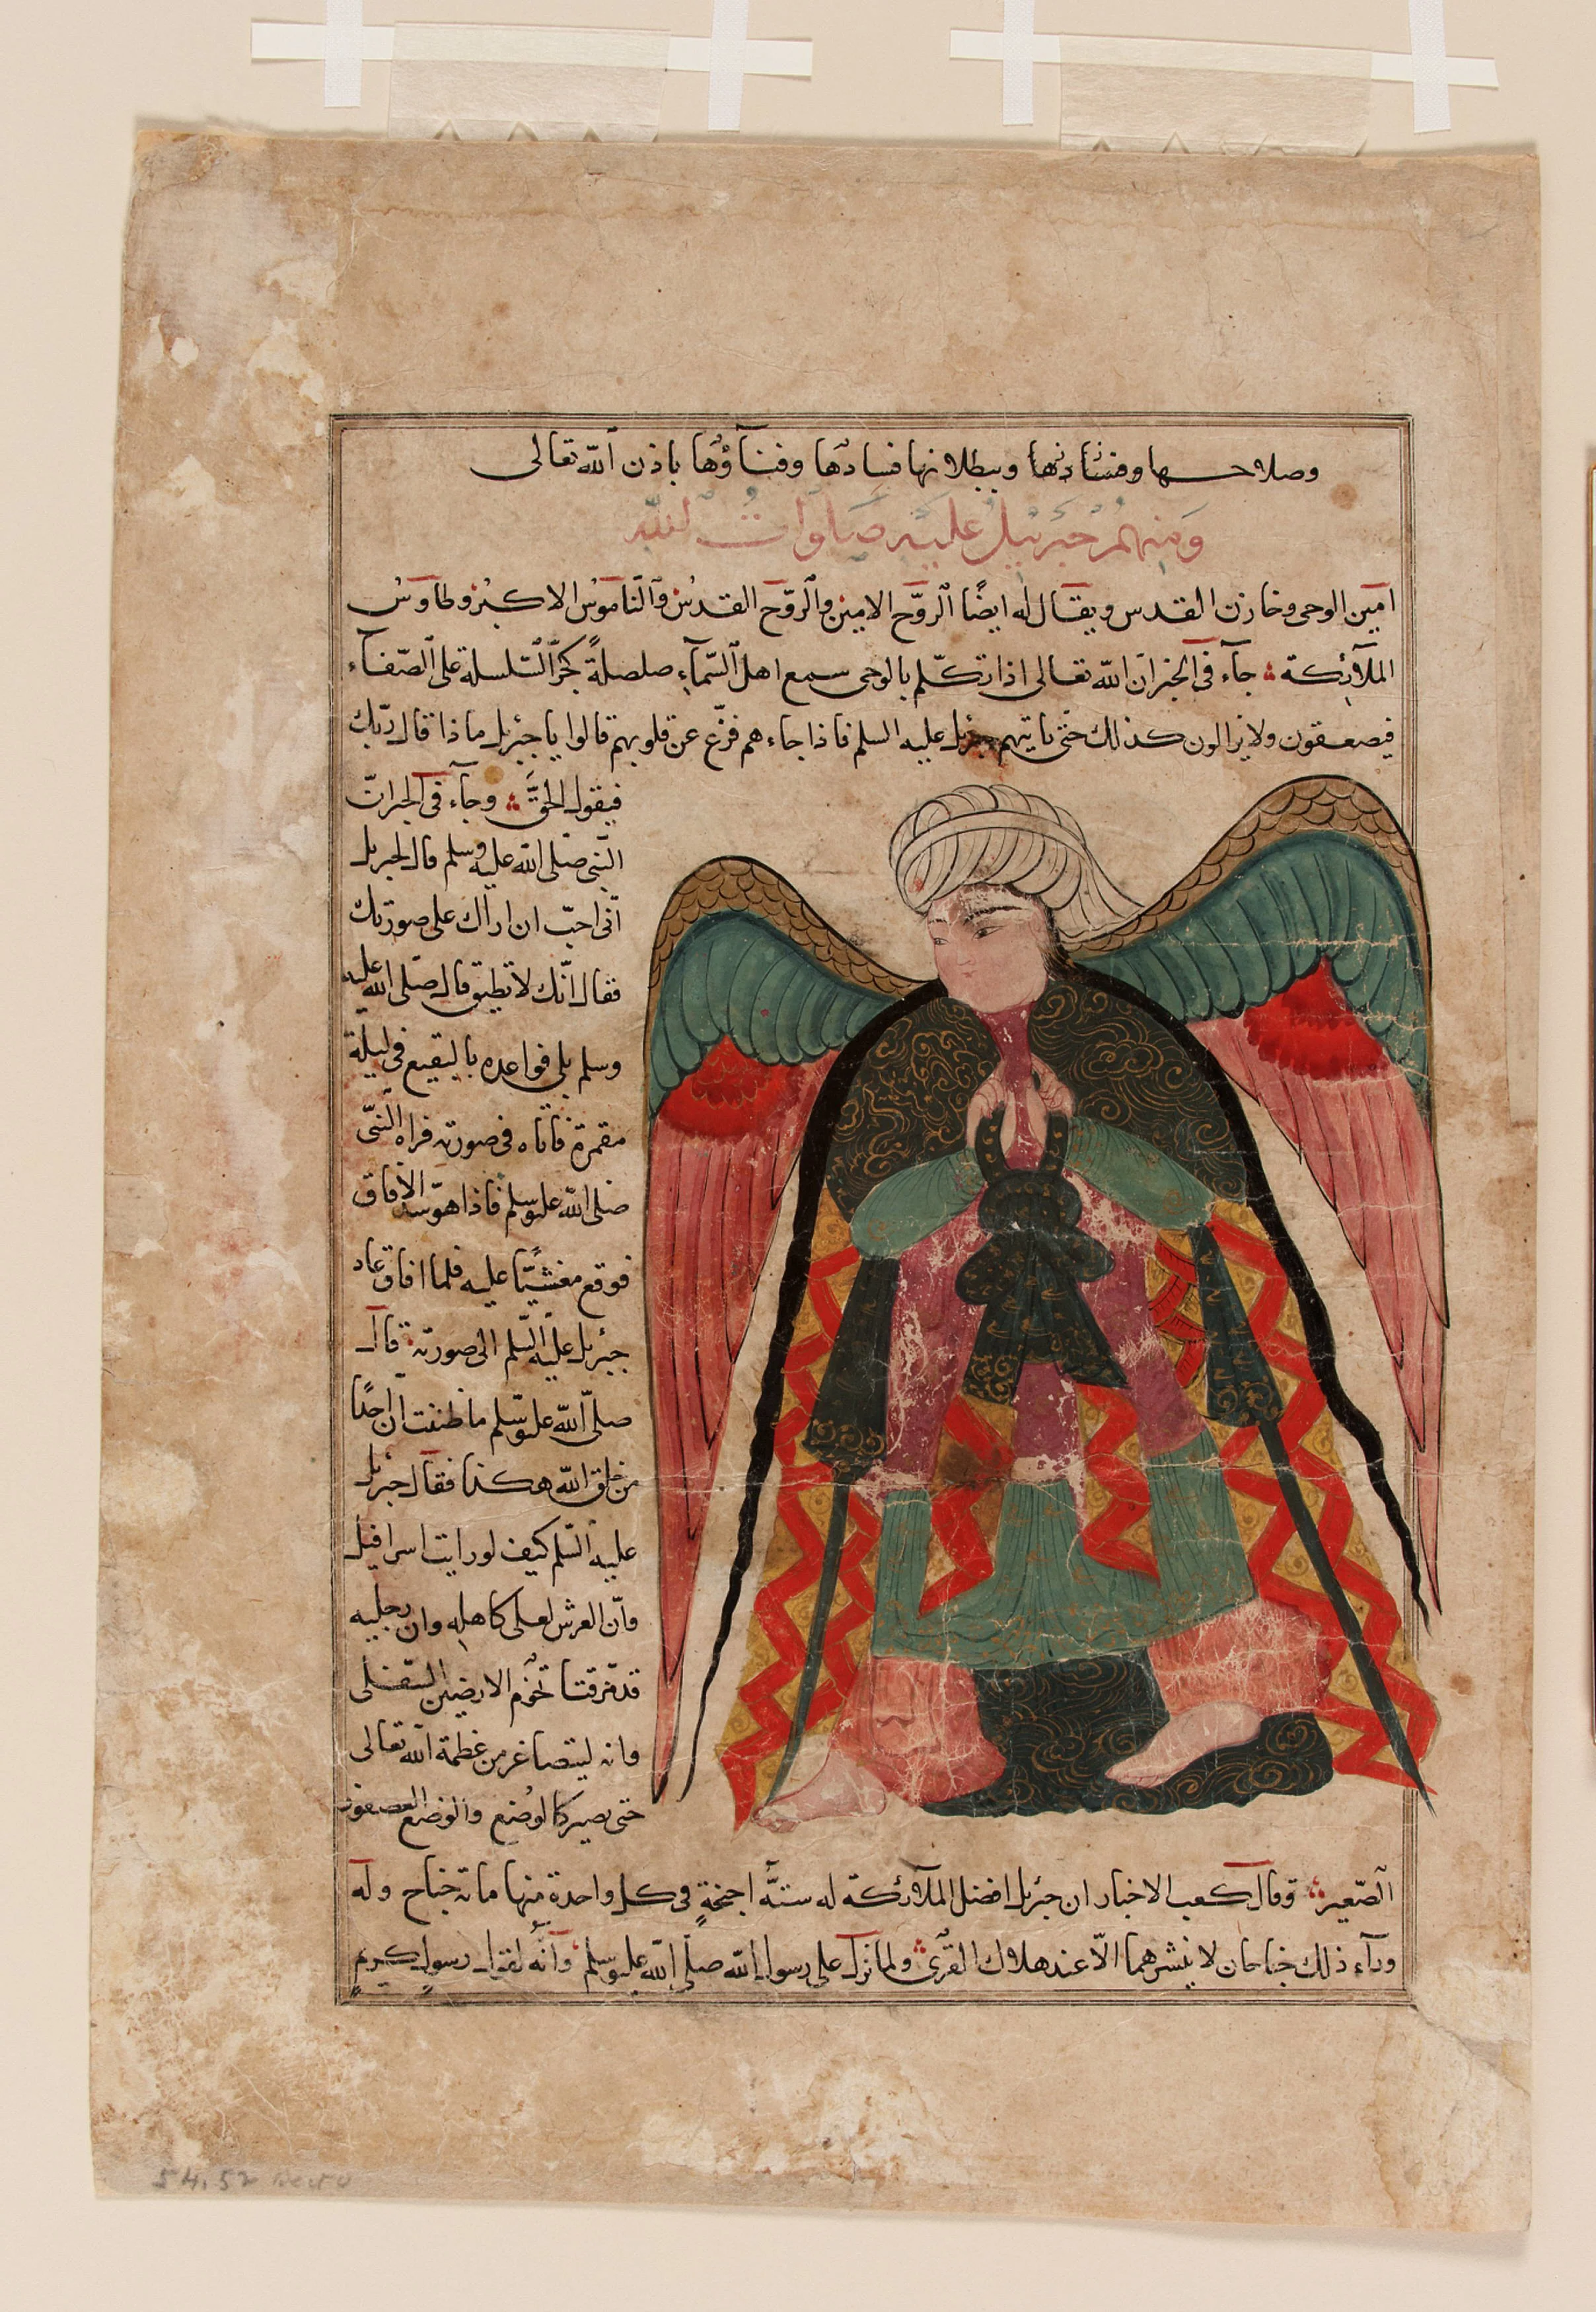 وصلاحها وفسادها وببطلانها فسادها وفناؤها باذن الله تعالى
ومنهم جبريل عليه صلوات الله
امين الوحى وخازن القدس ويقال له ايضًا الروح الامين والروح القدس والناموس الاكبر وطاوس
الملآئكة جآء فى الخبر ان الله تعالى اذا تكلم بالوحى سمع اهل السمآء صلصلةً كجر السلسلة على الصفآء
فيصعقون ولا يزالون كذلك حتى ياتيهم جبرئل عليه السلم فاذا جاءهم فزع عن قلوبهم قالوا يا جبرئل ماذا قال ربك
فيقول الحق وجآء فى الخبر ان
النبى صلى الله عليه وسلم قال لجبريل
انى احب ان اراك على صورتك
فقال انك لا تطيق قال صلى الله عليه
وسلم بلى فواعده بالبقيع فى ليلة
مقمرة فاتاه فى صورته فراه النبى
صلى الله عليه وسلم فاذا هو سد الافاق
فوقع مغشيًا عليه فلما افاق عاد
جبرئل عليه السلم الى صورته قال
صلى الله عليه وسلم ما ظننت ان احدًا
من خلق الله هكذا فقال جبرئل
عليه السلم كيف لو رايت اسرافيل
وان العرش لعلى كاهله وان رجليه
قد مرقتا تخوم الارضين السفلى
وانه ليتصاغر من عظمة الله تعالى
حتى يصير كالوضع والوضع العصفور
الصغير وقال كعب الاخبار ان جبرئل افضل الملآئكة له ستة اجنحةٍ فى كل واحدة منها مائة جناح وله
ورآء ذلك جناحان لا ينشرهما الا عند هلاك القرى ولما نزل على رسول الله صلى الله عليه وسلم وانه لقول رسولٍ كريمٍ
54.52 recto